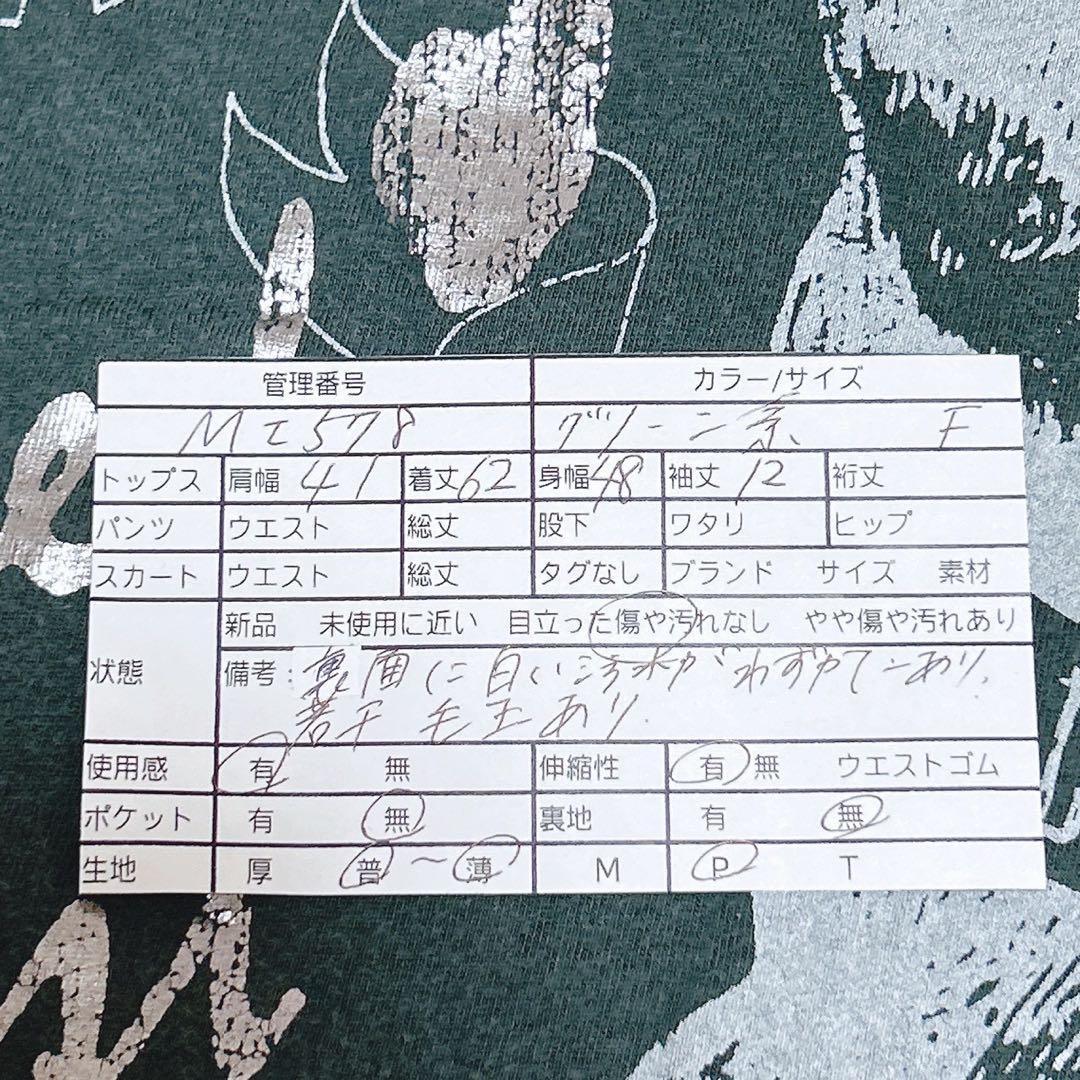 管理番号 カラー/サイズ
MI578 グリーン系 F
トップス 肩幅 41 着丈 62 身幅 48 袖丈 12 裄丈
パンツ ウエスト 総丈 股下 ワタリ ヒップ
スカート ウエスト 総丈 タグなし ブランド サイズ 素材
新品 未使用に近い 目立った傷や汚れなし やや傷や汚れあり
状態 備考: 裏面に白い汚れがわずかにあり、
若干毛玉あり.
使用感 有 無 伸縮性 有 無 ウエストゴム
ポケット 有 無 裏地 有 無
生地 厚 普 ~ 薄 M P T